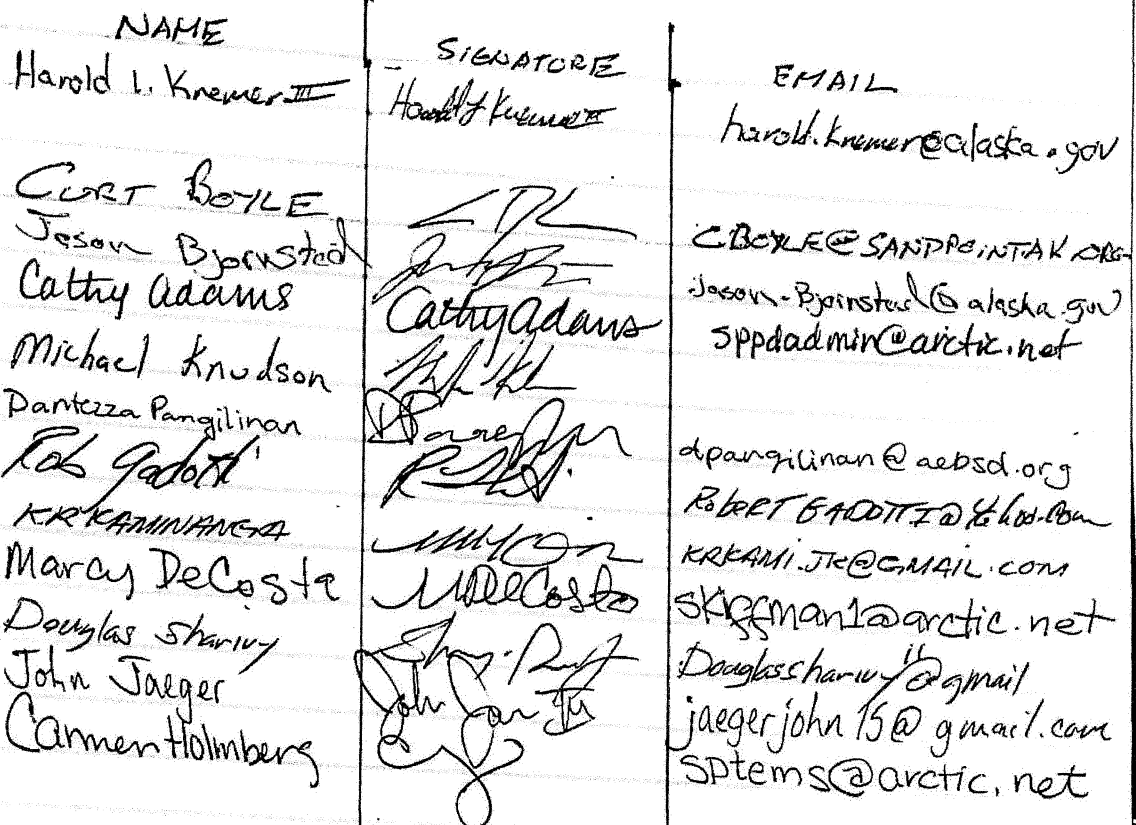 NAME SIGNATURE EMAIL
Harold I. Kremer III Harold I Kremer III harold.kremer@alaska.gov
CURT BOYLE CBOYLE@SANDPOINTAK.ORG
Jason Bjornstad Jason.Bjornstad@alaska.gov
Cathy Adams Cathy Adams sppdadmin@arctic.net
Michael Knudson
Dantezza Pangilinan dpangilinan@aebsd.org
Rob Gadotti ROBERTGADOTTI@Yahoo.com
KRKAMINANGA KRKAMI.JK@GMAIL.COM
Marcy DeCosta MDeCosta skiffman1@arctic.net
Douglas Sharivy Douglassharivy11@gmail
John Jaeger John jaegerjohn15@gmail.com
Carmen Holmberg sptems@arctic.net